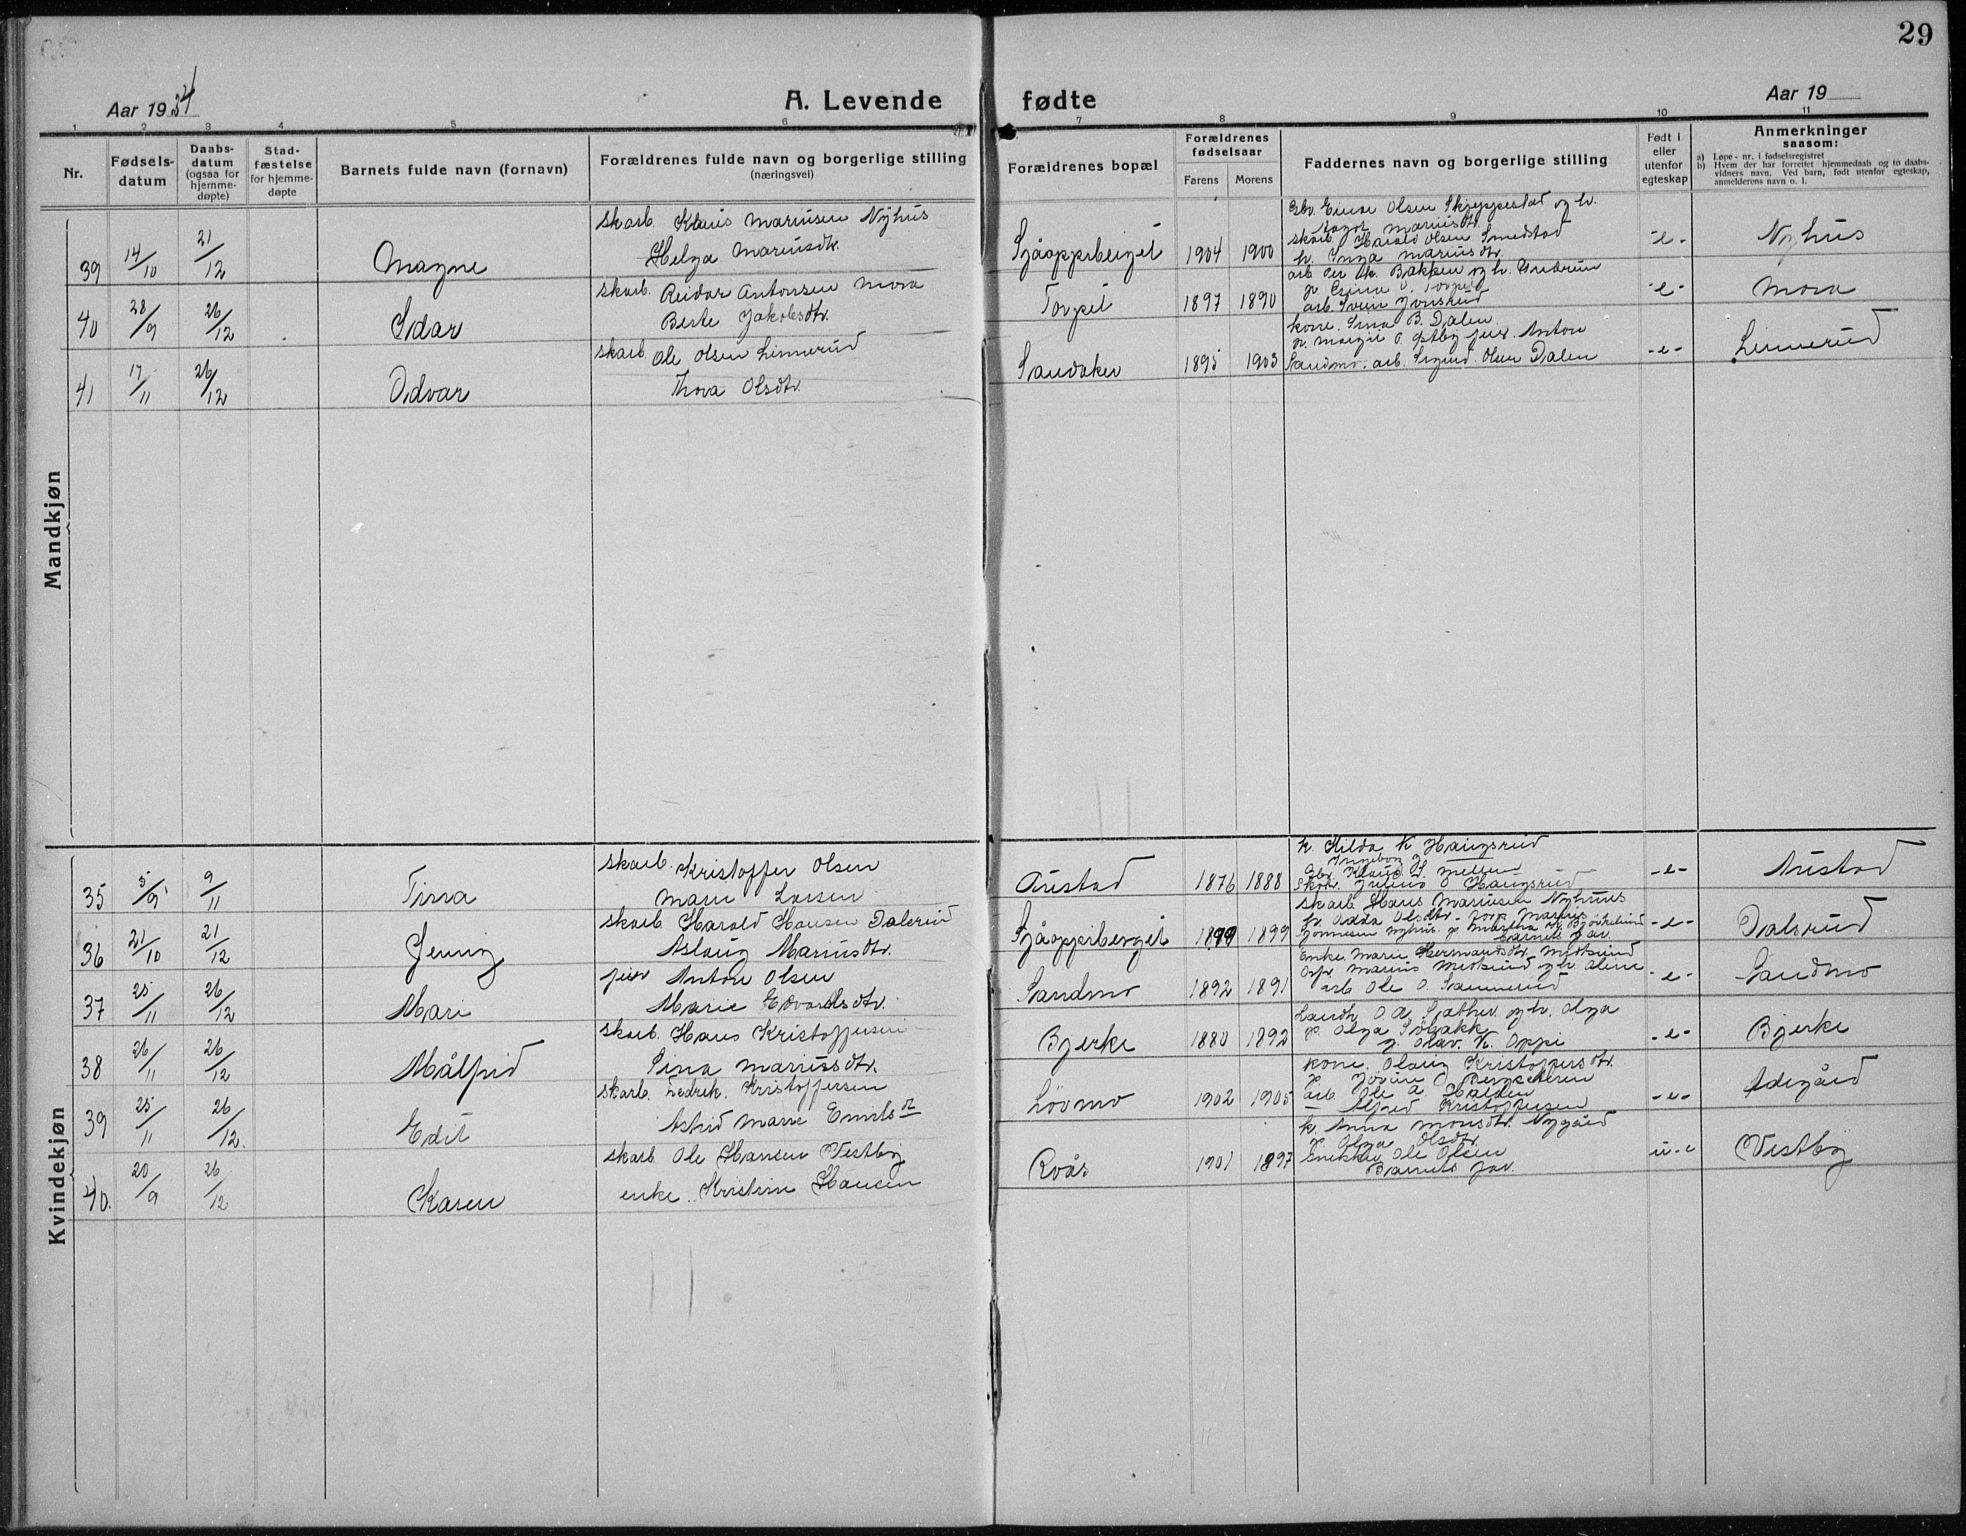 29
Aar 1934
A. Levende fødte
Aar 19
1 2 3 4 5 6 7 8 9 10 11
Nr.
Fødsels-
datum
Daabs-
datum
(ogsaa for
hjemme-
døpte)
Stad-
fæstelse
for hjemme-
døpte
Barnets fulde navn (fornavn)
Forældrenes fulde navn og borgerlige stilling
(næringsvei)
Forældrenes bopæl
Forældrenes
fødselsaar
Farens Morens
Faddernes navn og borgerlige stilling
Født i
eller
utenfor
egteskap
Anmerkninger
saasom:
a) Løpe-nr. i fødselsregistret
b) Hvem der har forrettet hjemmedaab og to daabs-
vidners navn. Ved barn, født utenfor egteskap,
anmelderens navn o. l.
Mandkjøn
39 14/10 21/12 Magne
skarb. Klaus Mariusen Nyhus
Helga Mariusdtr.
Sjåoppiberget 1904 1900
Gbr. Einar Olsen Skjeppestad og h.
Aagot Mariusdtr.
skarb. Harald Olsen Smedstad
h. Inga Mariusdtr.
-e- Nyhus
40 28/9 26/12 Idar
skarb. Reidar Antonsen Mora
Berte Jakobsdtr.
Torpet 1897 1890
arb. Per Kr. Bakken og h. Gudrun
p. Esina O. Torpet
arb. Svein Jonsrud
-e- Mora
41 17/11 26/12 Odvar
skarb. Ole Olsen Linnerud
Thora Olsdtr.
Sandaker 1895 1903
kone. Sina B. Dalen
p. Margit O. Østby jeier Anton
Sandmo. arb. Sigurd Olsen Dalen
-e- Linnerud
Kvindekjøn
35 5/9 9/11 Tina
skarb. Kristoffer Olsen
Marie Larsen
Austad 1876 1888
k. Hilda K Haugsrud
Ingeborg J.
Gbr. Klaus S. Jellum
Skarb. Julius O Haugsrud
-e- Austad
36 21/10 21/12 Jenny
skarb. Harald Hansen Dalsrud
Aslaug Mariusdtr.
Sjåoppiberget 1899 1899
skarb. Hans Mariusen Nyhuus
h. Odda Olsdtr. - forp. Marius
Nyhus. p. Martha Kr. Bjørkelund
Barnets far
-e- Dalsrud
37 25/11 26/12 Mari
jeier Anton Olsen
Marie Edvardsdtr.
Sandmo 1892 1891
Enke Marie Hermandsdtr. Melsiud
Marius og h. Aline
arb. Ole O. Sannerud
-e- Sandmo
38 26/11 26/12 Målfrid
skarb. Hans Kristoffersen
Sina Mariusdtr.
Bjerke 1880 1892
Landh. O A Sæther og h. Olga
p. Olga Solbakk
g. Olav K. Oppi
-e- Bjerke
39 25/11 26/12. Edit
skarb. Fedrik Kristoffersen
Astrid Marie Emilsdt
Løvmo 1902 1905
kone. Olaug Kristoffersdtr.
p. O Bergseteren
arb. Ole A. Halden
— Alfred Kristoffersen
-e- Ødegård
40. 20/9 26/12 Karen
skarb. Ole Hansen Vestby
enke. Kristine Hansen
Kvås 1901 1897
k. Anna Monsdtr. Nygård
p. Olga Olsdtr.
Snekker Ole Olsen
Barnets far.
u-e Vestby